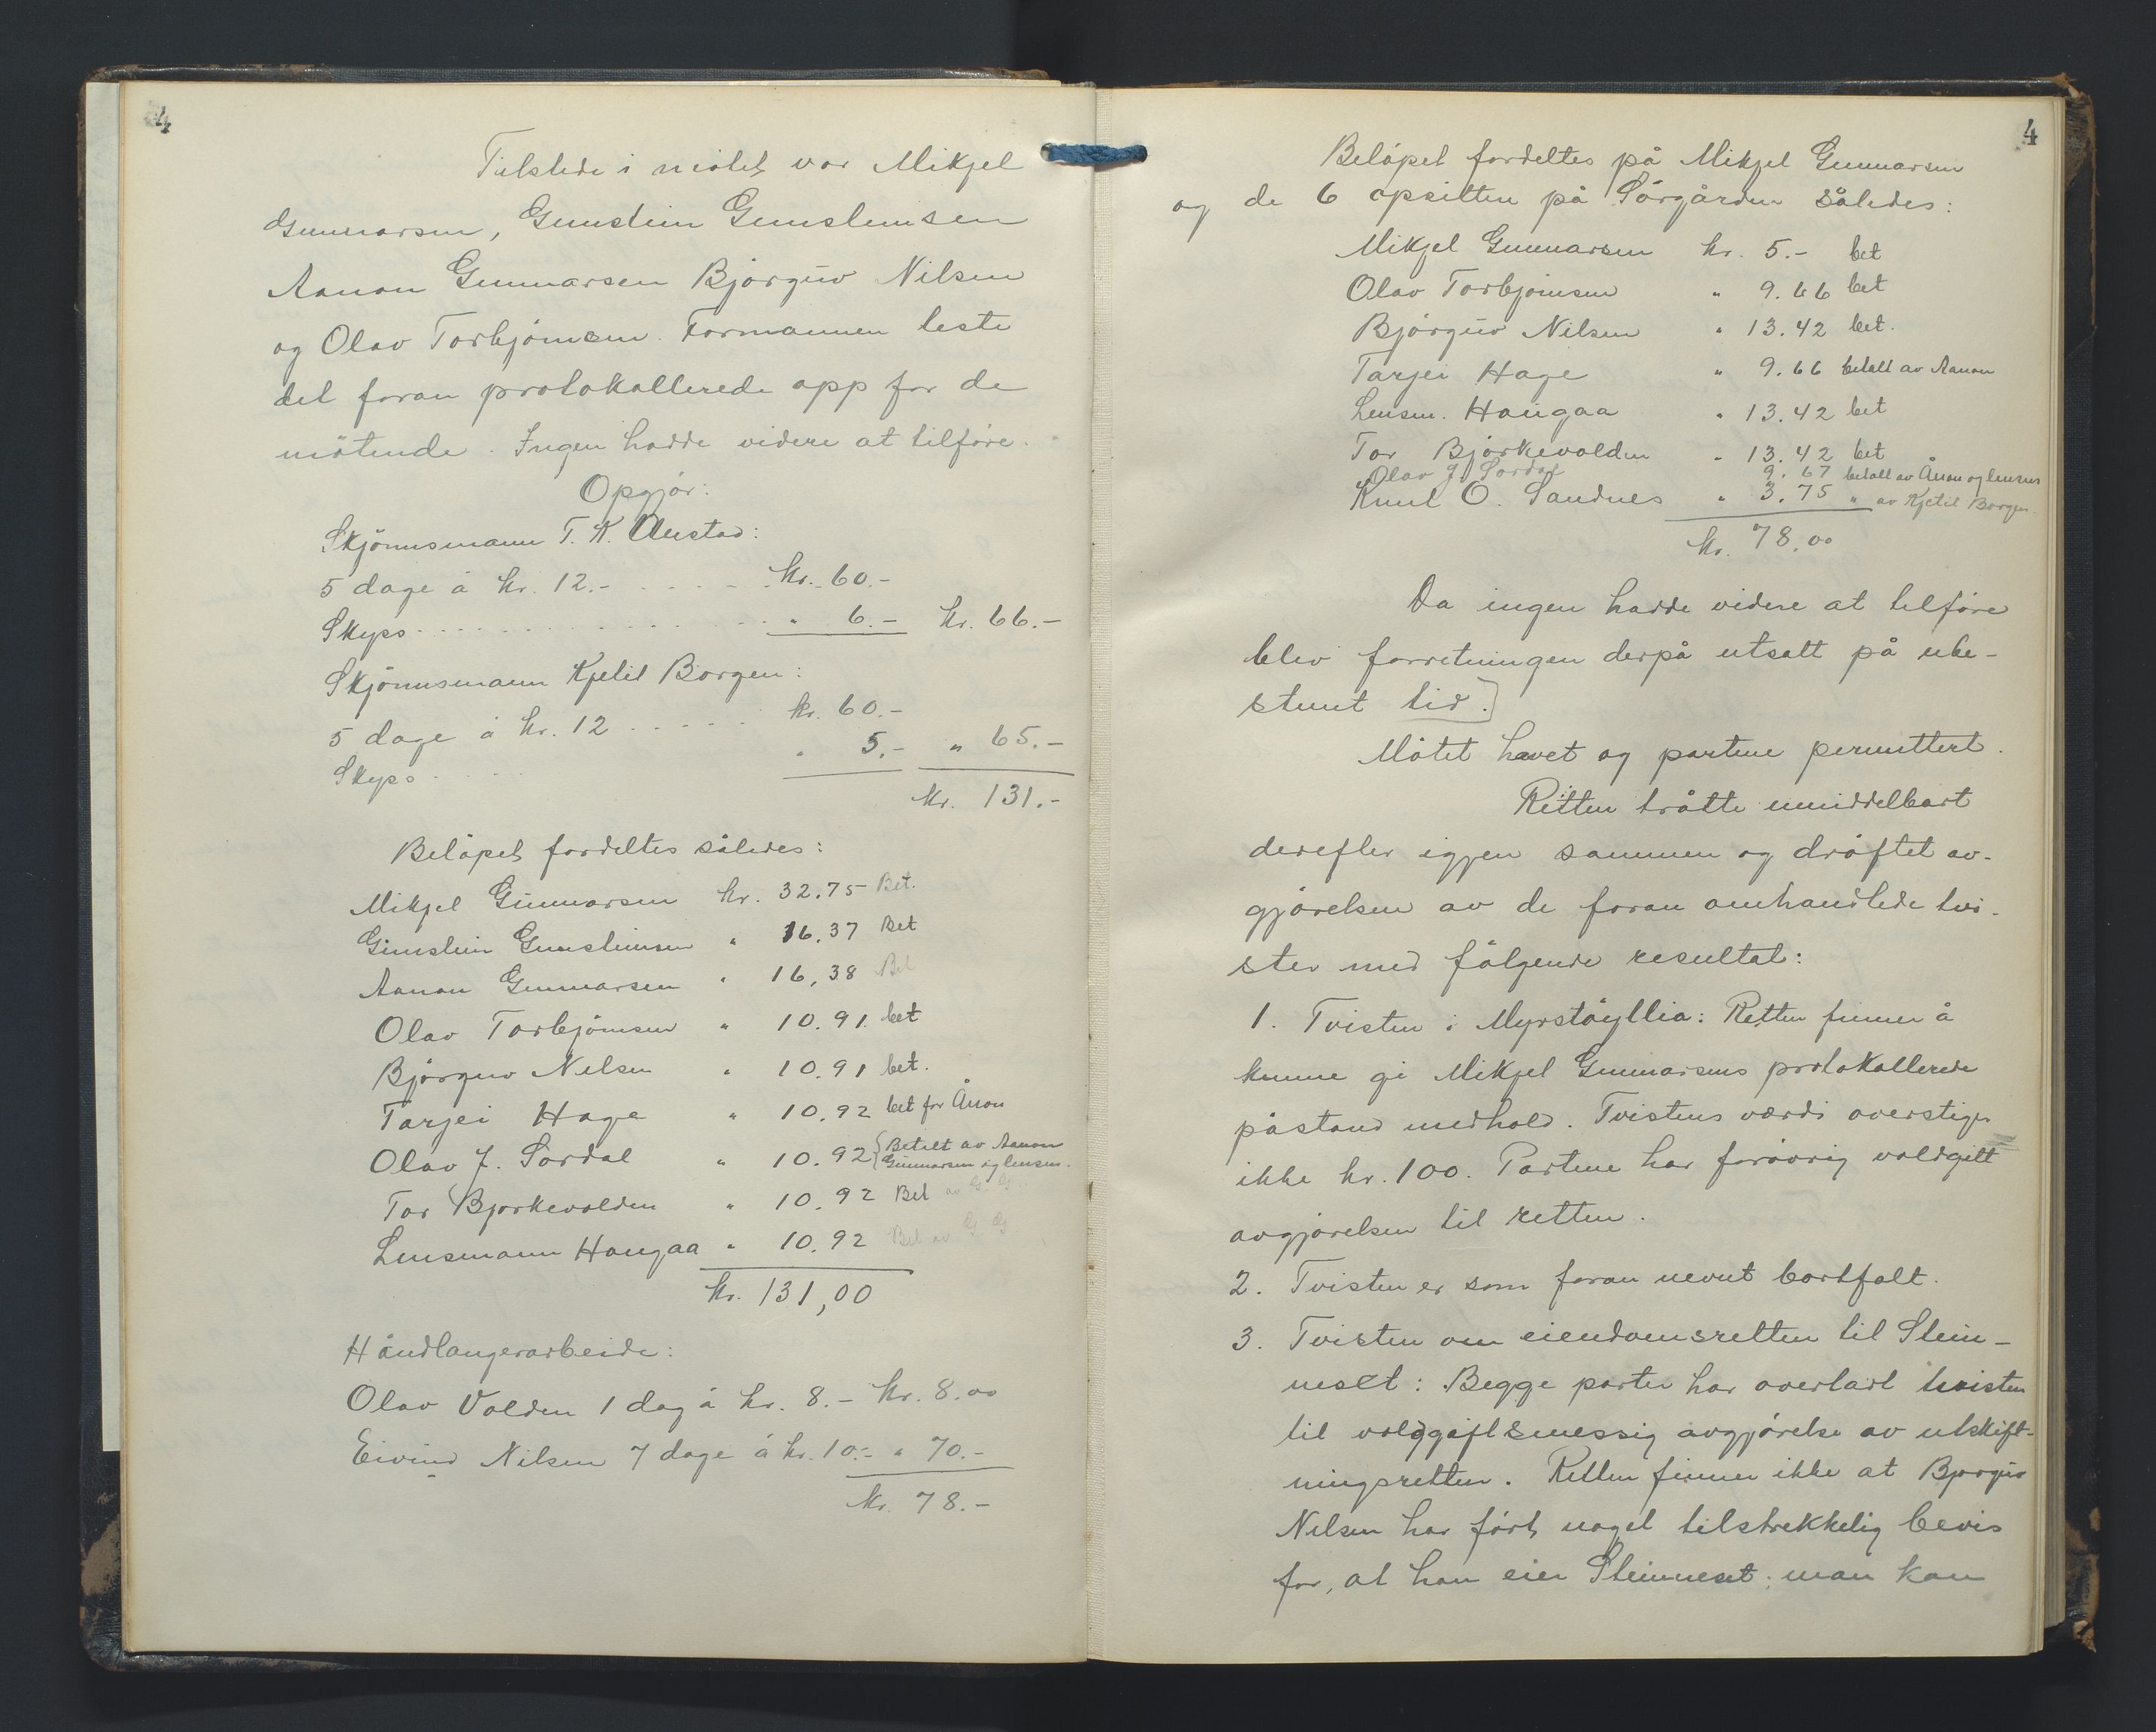 4
Tilstede i mötet var Mikjel
Gunnarsen, Gunstein Gunsteinsen
Aanon Gunnarsen Björguv Nilsen
og Olav Torbjörnsen. Formannen leste
det foran protokollerede opp for de
mötende. Ingen hadde videre at tilföre.
Opgjör:
Skjönnsmann T. K. Austad:
5 dage á kr. 12.- . . . . - kr. 60.-
Skyss . . . . . . . . . . " 6.- kr. 66.-
Skjönnsmann Kjetil Borgen:
5 dage á kr. 12 . . . . . kr. 60.-
Skyss . . . . " 5.- " 65.-
kr. 131.-
Belöpet fordeltes således:
Mikjel Gunnarsen kr. 32.75 Bet.
Gunstein Gunsteinsen " 16.37 Bet
Aanon Gunnarsen " 16,38 Bet
Olav Torbjörnsen " 10.91. bet
Björguv Nilsen " 10.91 bet.
Tarjei Hage " 10.92 bet for Ånon
Olav J. Sordal " 10.92 { Betalt av Aanon
Gunnarsen og lensm.
Tor Bjorkevolden " 10.92 Bet av G. G.
Lensmann Haugaa " 10.92 Bet av G G
kr. 131,00
Håndlangerarbeide:
Olav Valden 1 dag á kr. 8.- kr. 8.00
Eivind Nilsen 7 dage á kr. 10.- " 70.-
kr. 78.-
4
Belöpet fordeltes på Mikjel Gunnarsen
og de 6 opsitten på Sörgården således:
Mikjel Gunnarsen kr. 5.- bet
Olav Torbjörnsen " 9.66 bet
Björguv Nilsen " 13.42 bet.
Tarjei Hage " 9.66 betalt av Aanon
Lensm. Haugaa " 13.42 bet
Tor Björkevolden " 13.42 bet
Olav J Sordal 9.67 betalt av Ånon og lensm
Knut O. Sandnes " 3.75 " av Kjetil Borgen.
kr. 78.00
Da ingen hadde videre at tilföre
blev forretningen derpå utsatt på ube-
stemt tid.]
Mötet hevet og partene permittert.
Retten trådte umiddelbart
derefter igjen sammen og dröftet av-
gjörelsen av de foran omhandlede tvi-
ster med fölgende resultat:
1. Tvisten i Myrstöyllia: Retten finner å
kunne gi Mikjel Gunnarsens protokollerede
påstand medhold. Tvistens værdi overstiger
ikke kr. 100. Partene har forövrig voldgitt
avgjörelsen til retten.
2. Tvisten er som foran nevnt bortfalt.
3. Tvisten om eiendomsretten til Stein-
neset: Begge parter har overlatt tvisten
til voldgiftsmessig avgjörelse av utskift-
ningsretten. Retten finner ikke at Bjorguv
Nilsen har fört noget tilstrekkelig bevis
for, at han eier Steinneset; man kan